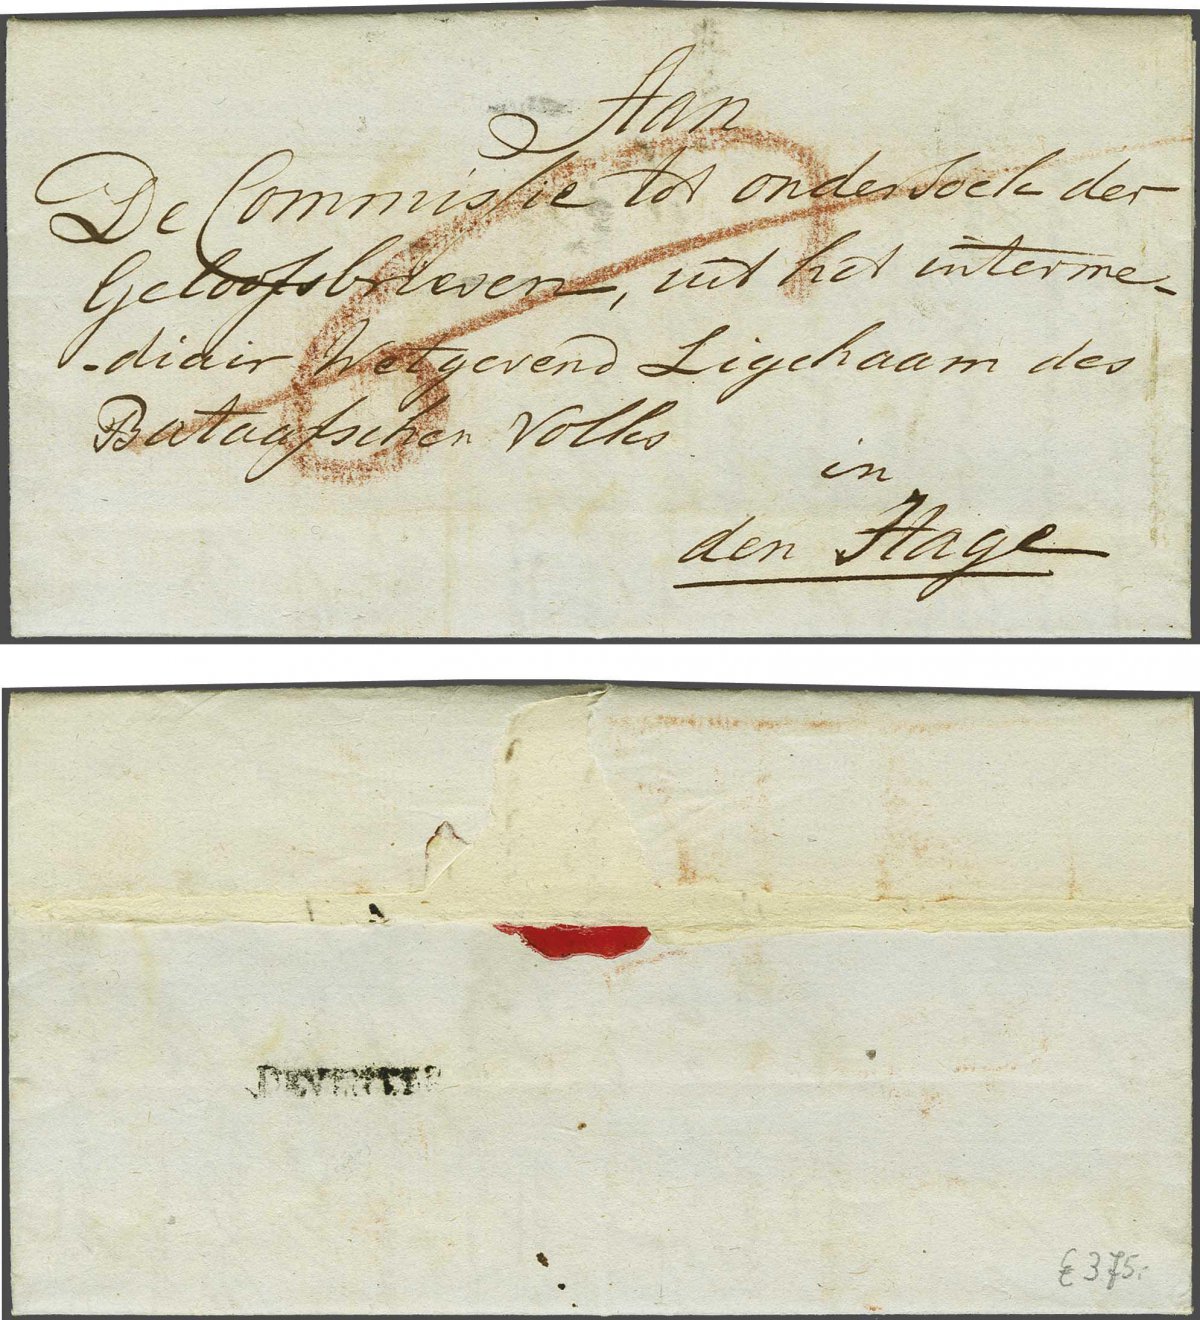 Aan
De Commissie tot ondersoek der
Geloofsbrieven, uit het interme-
-diair Wetgevend Ligchaam des
Bataafschen Volks
in
den Hage
DEVENTER
£ 375.-